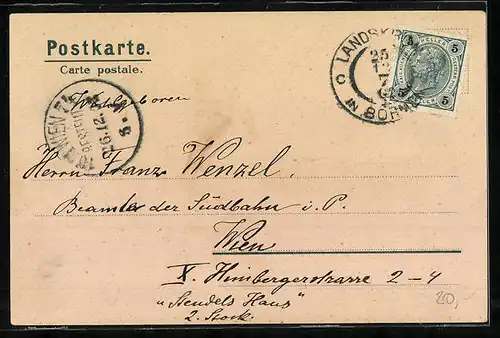 Postkarte.
Carte postale.
LANDSKRON
IN BÖHMEN
25
12
5 5
5 5
10/1 WIEN 74
BESTELLT
26.12.
8
Wohlgeboren
Herrn Franz Wenzel,
Beamter der Südbahn i. P.
Wien
X. Himbergerstrasse 2-4
"Stendels Haus"
2. Stock.
20,-